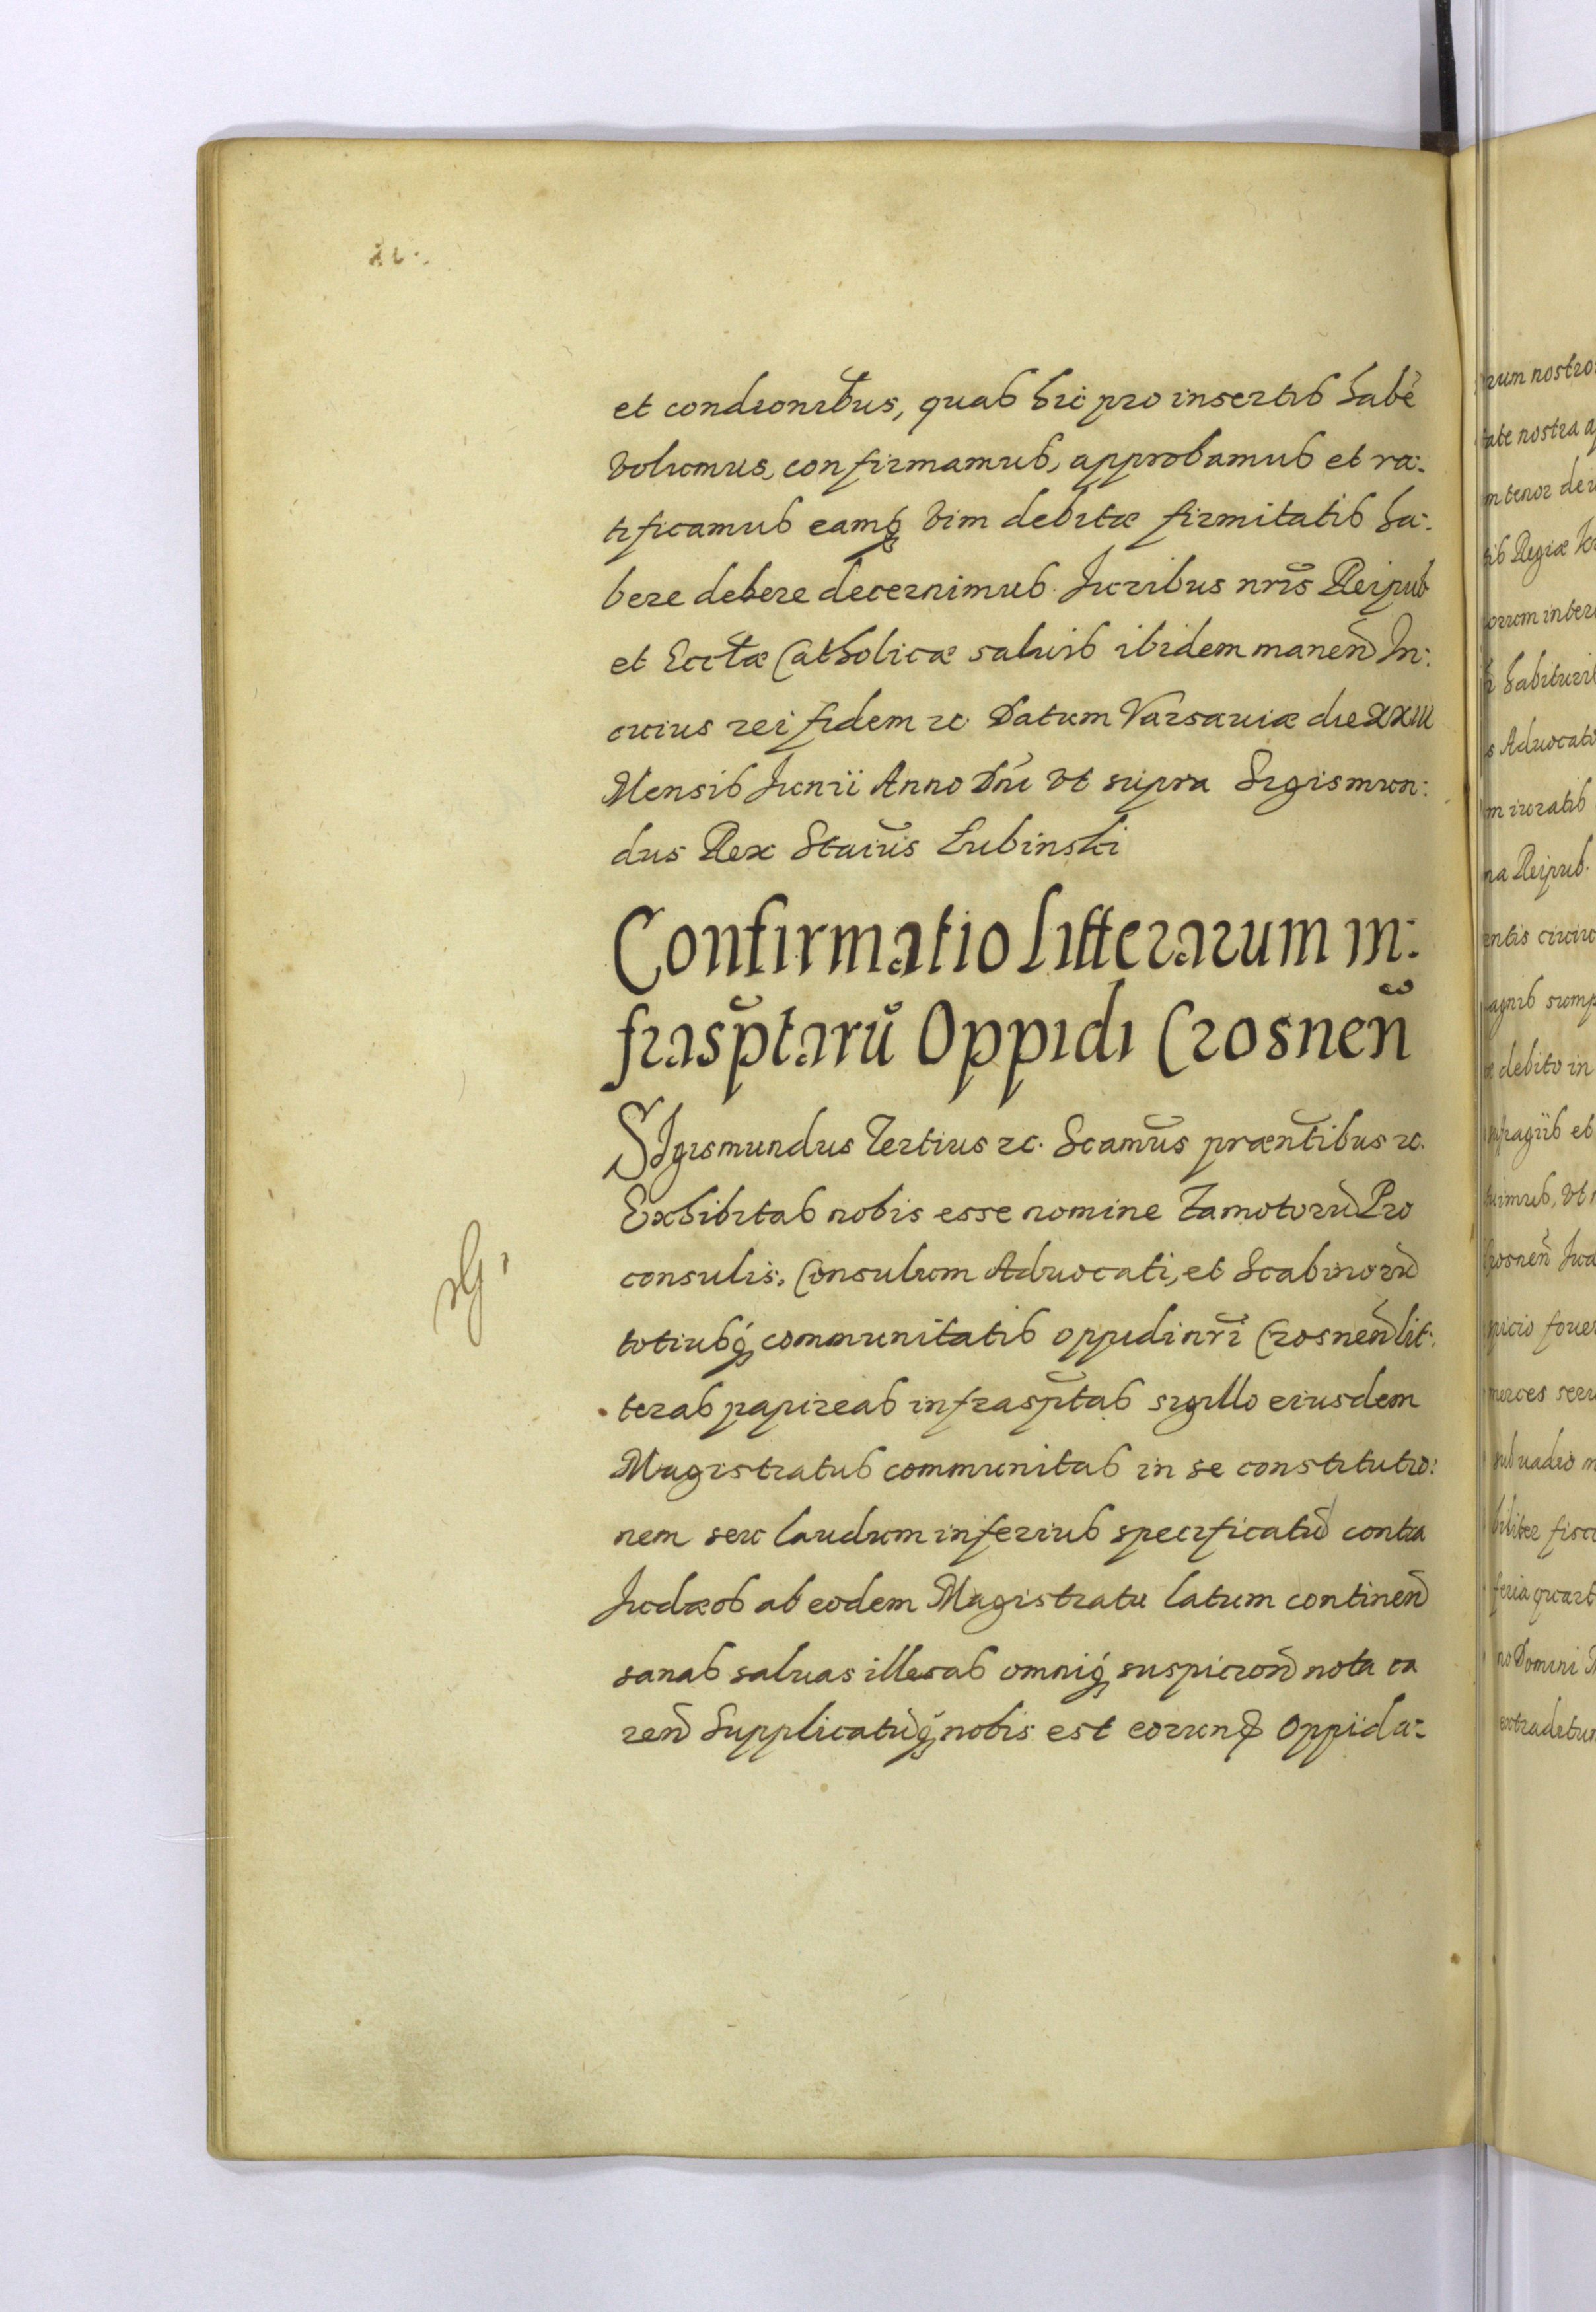 et condionibus, quas hic pro insertis habē
volumus, confirmamus, approbamus et ra:
tificamus eamq̨ vim debitæ firmitatis ha:
bere debere decernimus. Iuribus nr̃is Reipub
et Eccl̃æ Catholicæ saluis ibidem maneñ In:
cuius rei fidem ꝛc. Datum Varsauiæ die XXIII
Mensis Iunii Anno Dn̄i vt supra Sigismun:
dus Rex Staius̃ Łubinski
Confirmatio Litterarum in:
frasp̃tarũ Oppidi Crosneñ
SIgismundus Tertius ꝛc. Scamus̃ præntĩbus ꝛc.
Exhibitas nobis esse nomine Famotorũ Pro
consulis, Consulum Aduocati, et Scabinorũ
totiusq̨ communitatis oppidi nr̃i Crosneñ lit:
teras papireas infrasp̃tas sigillo eiusdem
Magistratus communitas in se constitutio:
nem seu laudum inferius specificatũ contra
Iudæos ab eodem Magistratu latum contineñ
sanas saluas illesas omniq̨ suspicioñ nota ca
reñ Supplicatũq̨ nobis est eorund̨ Oppida:
rum nostro
tate nostra a
m tenor de
tis Regiæ
orum inter
habituri
s Aduocati
m iuratis
na Reipub.
entis
agnis sump
debito in
ffragiis et
uimus, vt
Crosneñ Iud
picio foue
merces
sub uadio
biliter fisc
feria quart
no Domini
extradetur